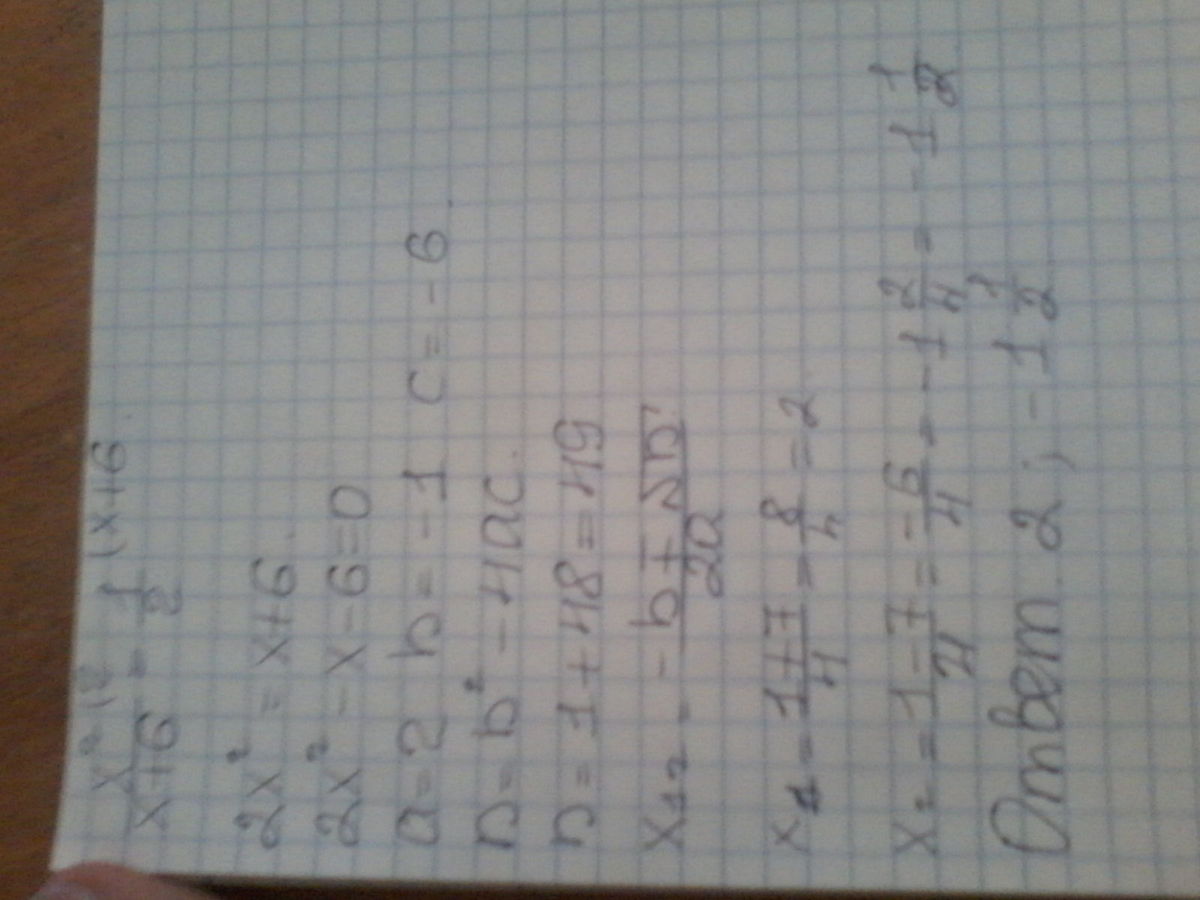 x² |2 / x+6 = 1/2 |x+6
2x² = x+6.
2x² - x - 6 = 0
a = 2 b = -1 c = -6.
D = b² - 4ac.
D = 1 + 48 = 49
x₁,₂ = (-b ± √D) / 2a
x₁ = (1+7)/4 = 8/4 = 2
x₂ = (1-7)/4 = -6/4 = -1 2/4 = -1 1/2
Ответ. 2; -1 1/2